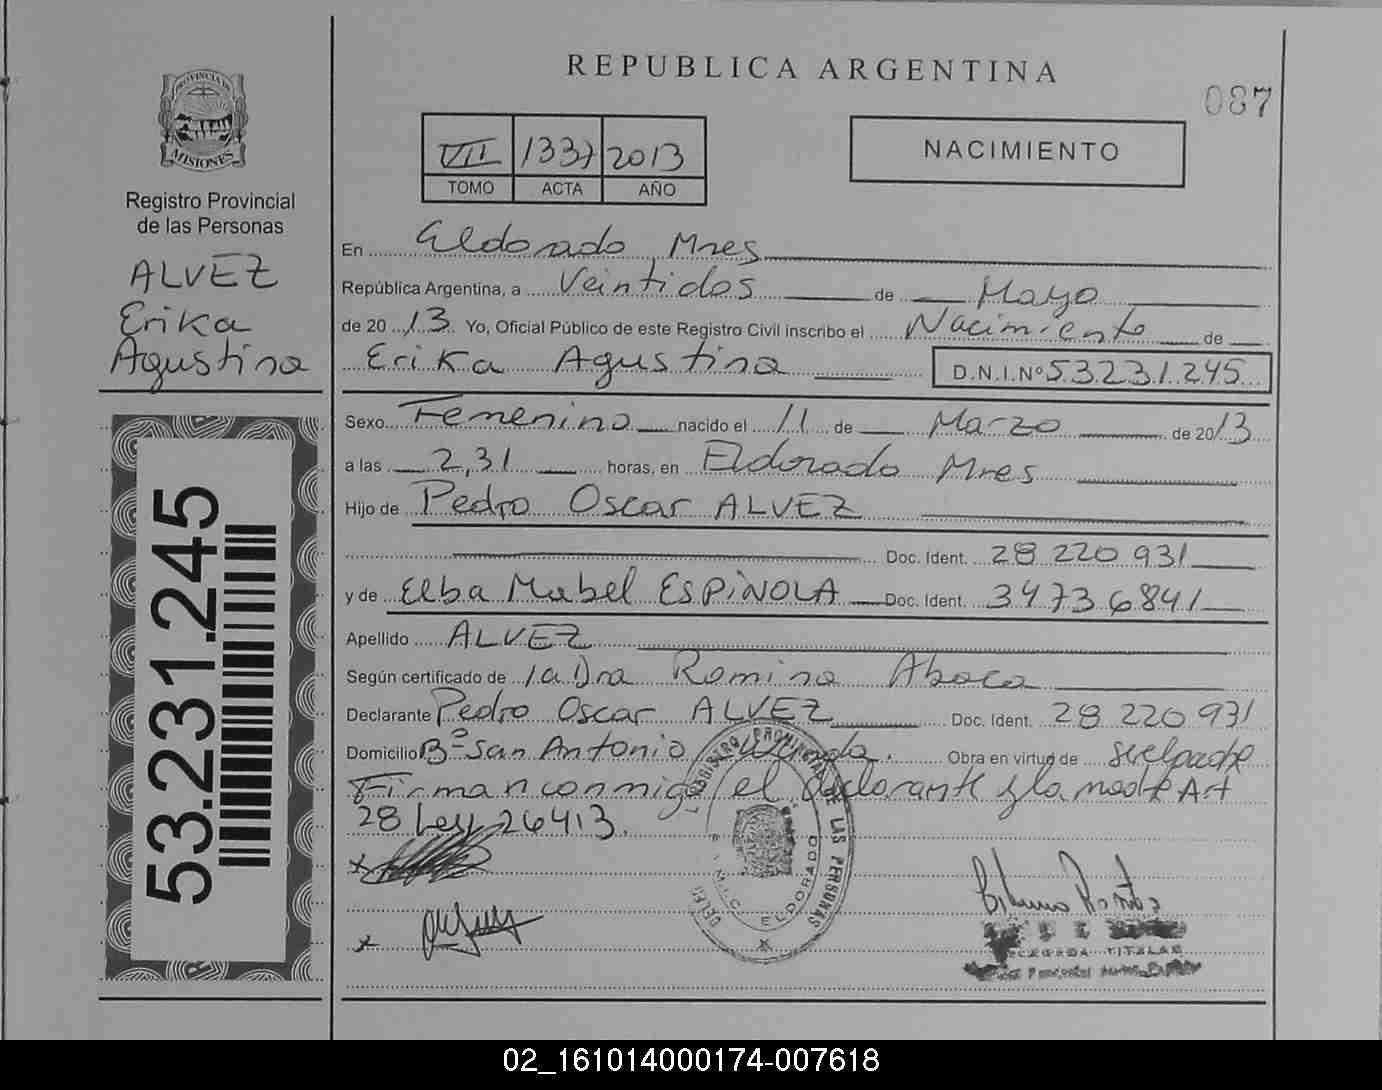 REPUBLICA ARGENTINA
087
PROVINCIA DE
MISIONES
Registro Provincial
de las Personas
ALVEZ
Erika
Agustina
53.231.245
VII 1337 2013
TOMO ACTA AÑO
NACIMIENTO
En Eldorado Mnes
República Argentina, a Veintidos de Mayo
de 20 13. Yo, Oficial Público de este Registro Civil inscribo el Nacimiento de
Erika Agustina D.N.I.Nº 53231245
Sexo Femenino nacido el 11 de Marzo de 20 13
a las 2,31 horas, en Eldorado Mnes
Hijo de Pedro Oscar ALVEZ
Doc. Ident. 28 220 931
y de Elba Mabel ESPINOLA Doc. Ident. 34736841
Apellido ALVEZ
Según certificado de la Dra Romina Aboca
Declarante Pedro Oscar ALVEZ Doc. Ident. 28 220 931
Domicilio Bº San Antonio Wanda. Obra en virtud de ser el padre
Firman conmigo el declarante y la madre Art
28 Ley 26413.
REGISTRO PROVINCIAL DE LAS PERSONAS
ELDORADO
TITULAR
02_161014000174-007618